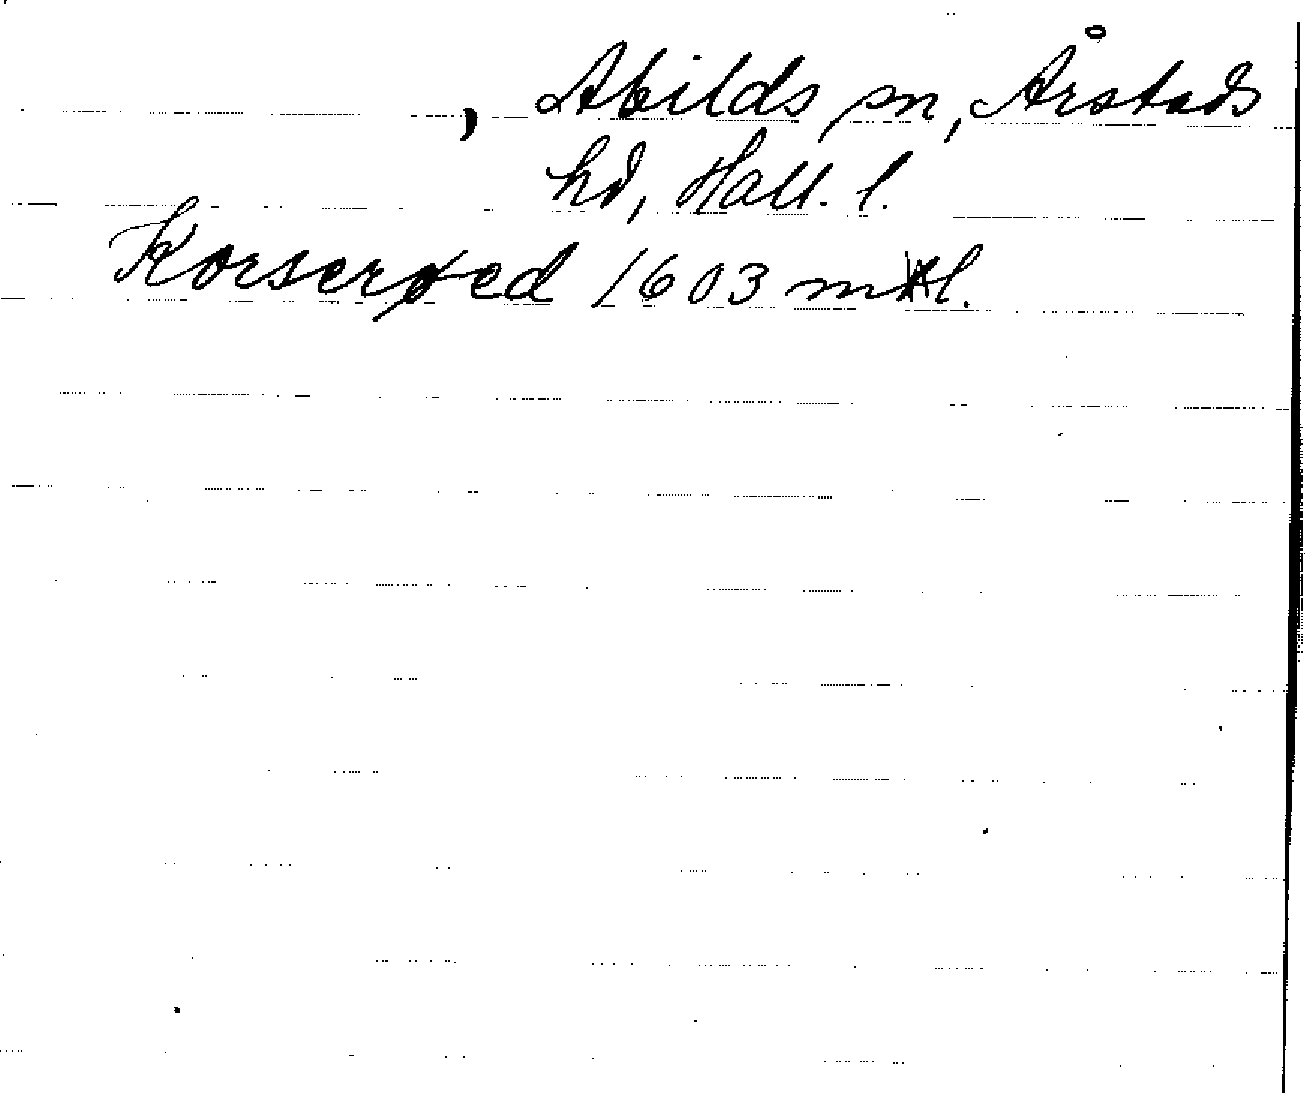 , Abilds sn, Årstads
hd, Hall. l.
Korserøed 1603 mtl.